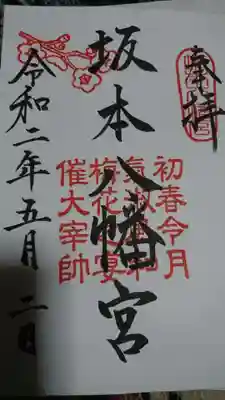 奉拝
坂本八幡宮
初春令月
気淑風和
梅花宴
催大宰帥
令和二年五月二日